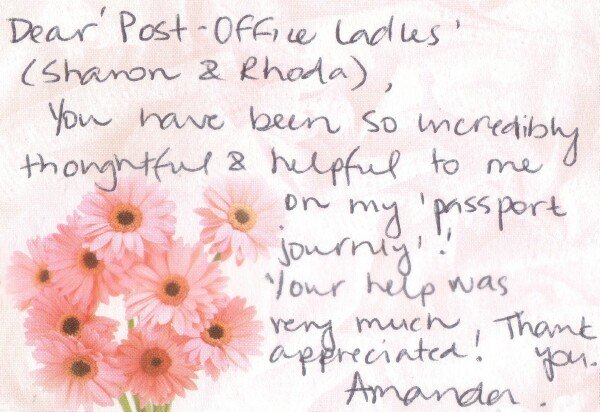 Dear 'Post-Office Ladies'
(Sharon & Rhoda),
You have been so incredibly
thoughtful & helpful to me
on my 'passport
journey'!
Your help was
very much
appreciated! Thank
you.
Amanda.